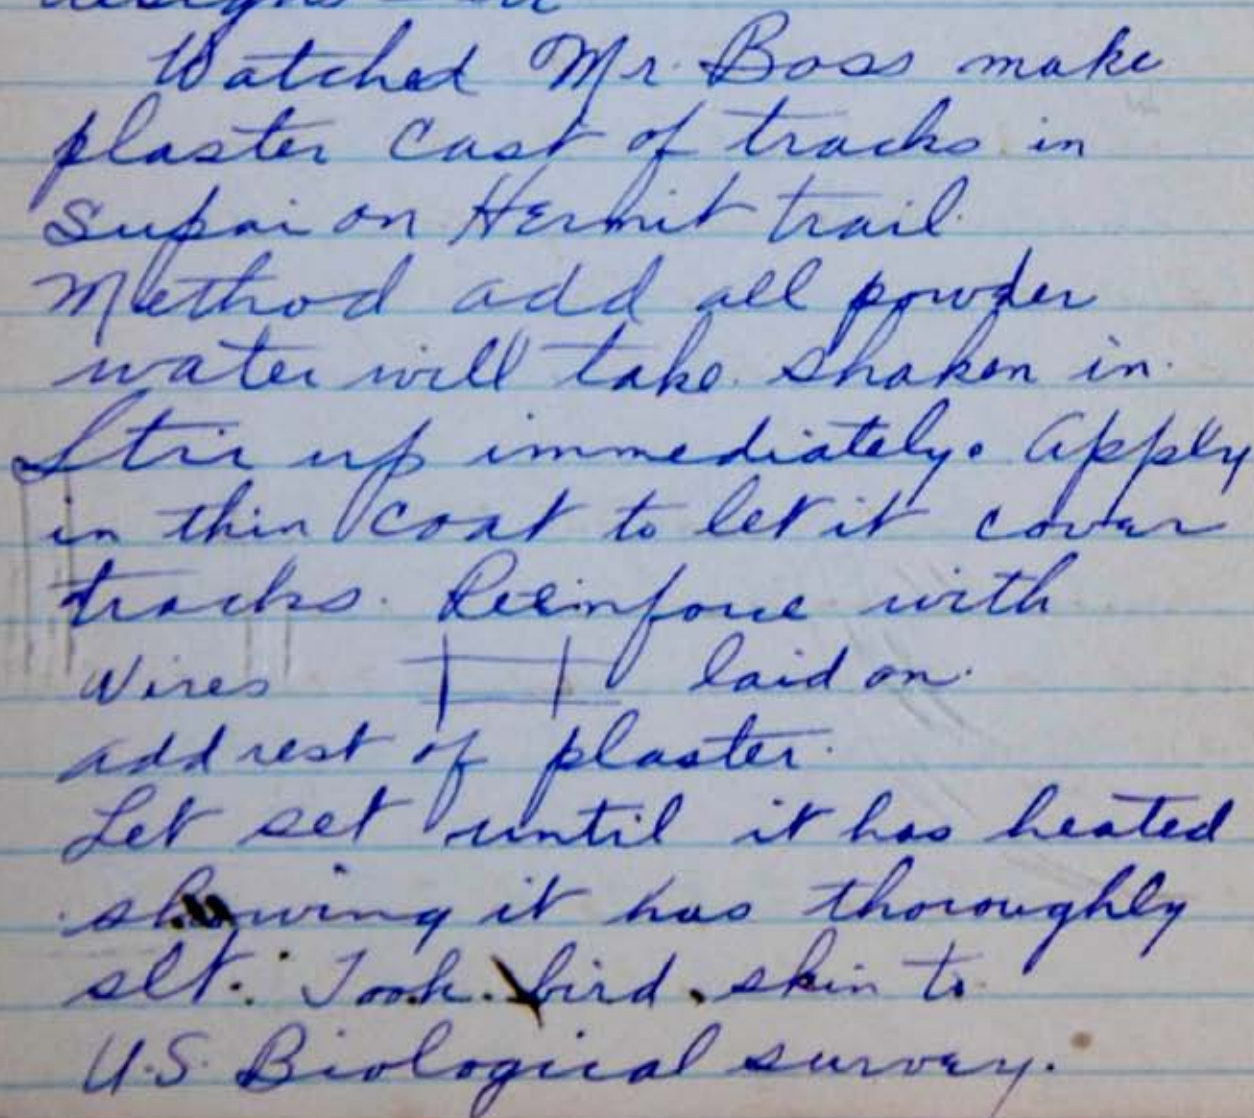 Watched Mr. Boss make
plaster cast of tracks in
Supai on Hermit trail.
Method add all powder
water will take shaken in.
Stir up immediately. Apply
in thin coat to let it cover
tracks. Reeinforce with
Wires laid on.
add rest of plaster.
Let set until it has heated
showing it has thoroughly
set. Took bird skin to
U.S. Biological survey.